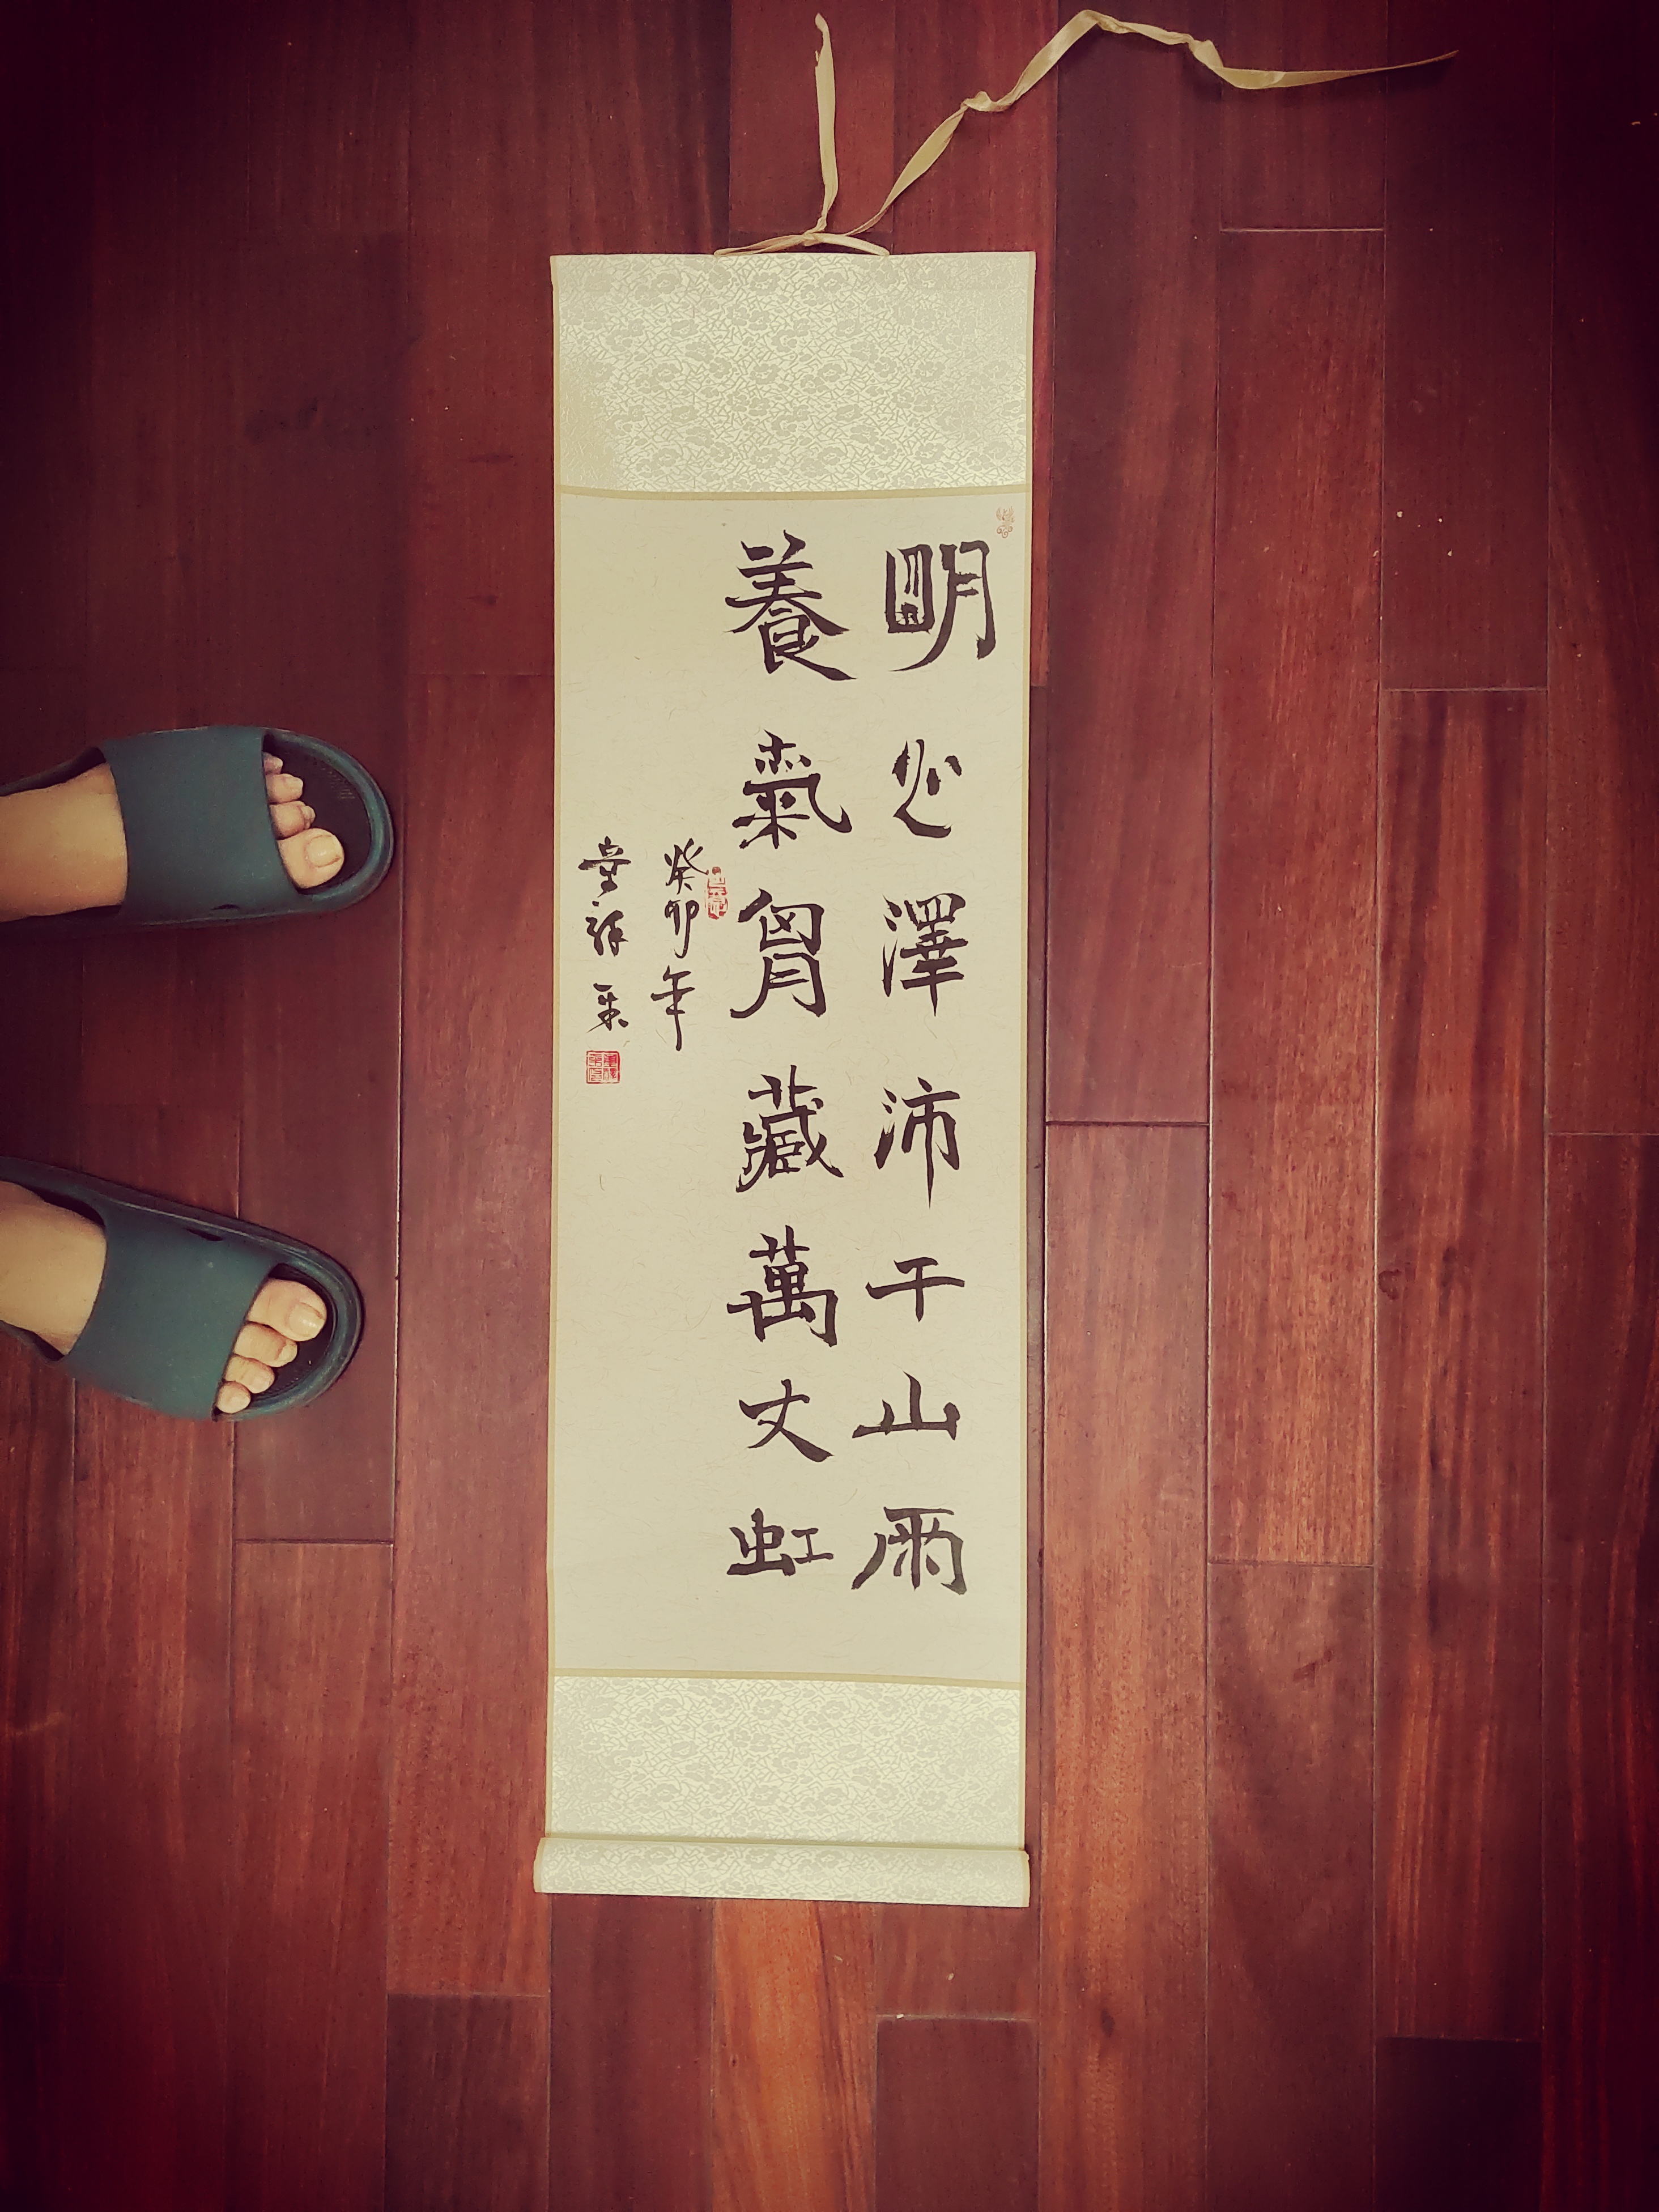 明心澤沛千山雨
養氣胷藏萬丈虹
癸卯年